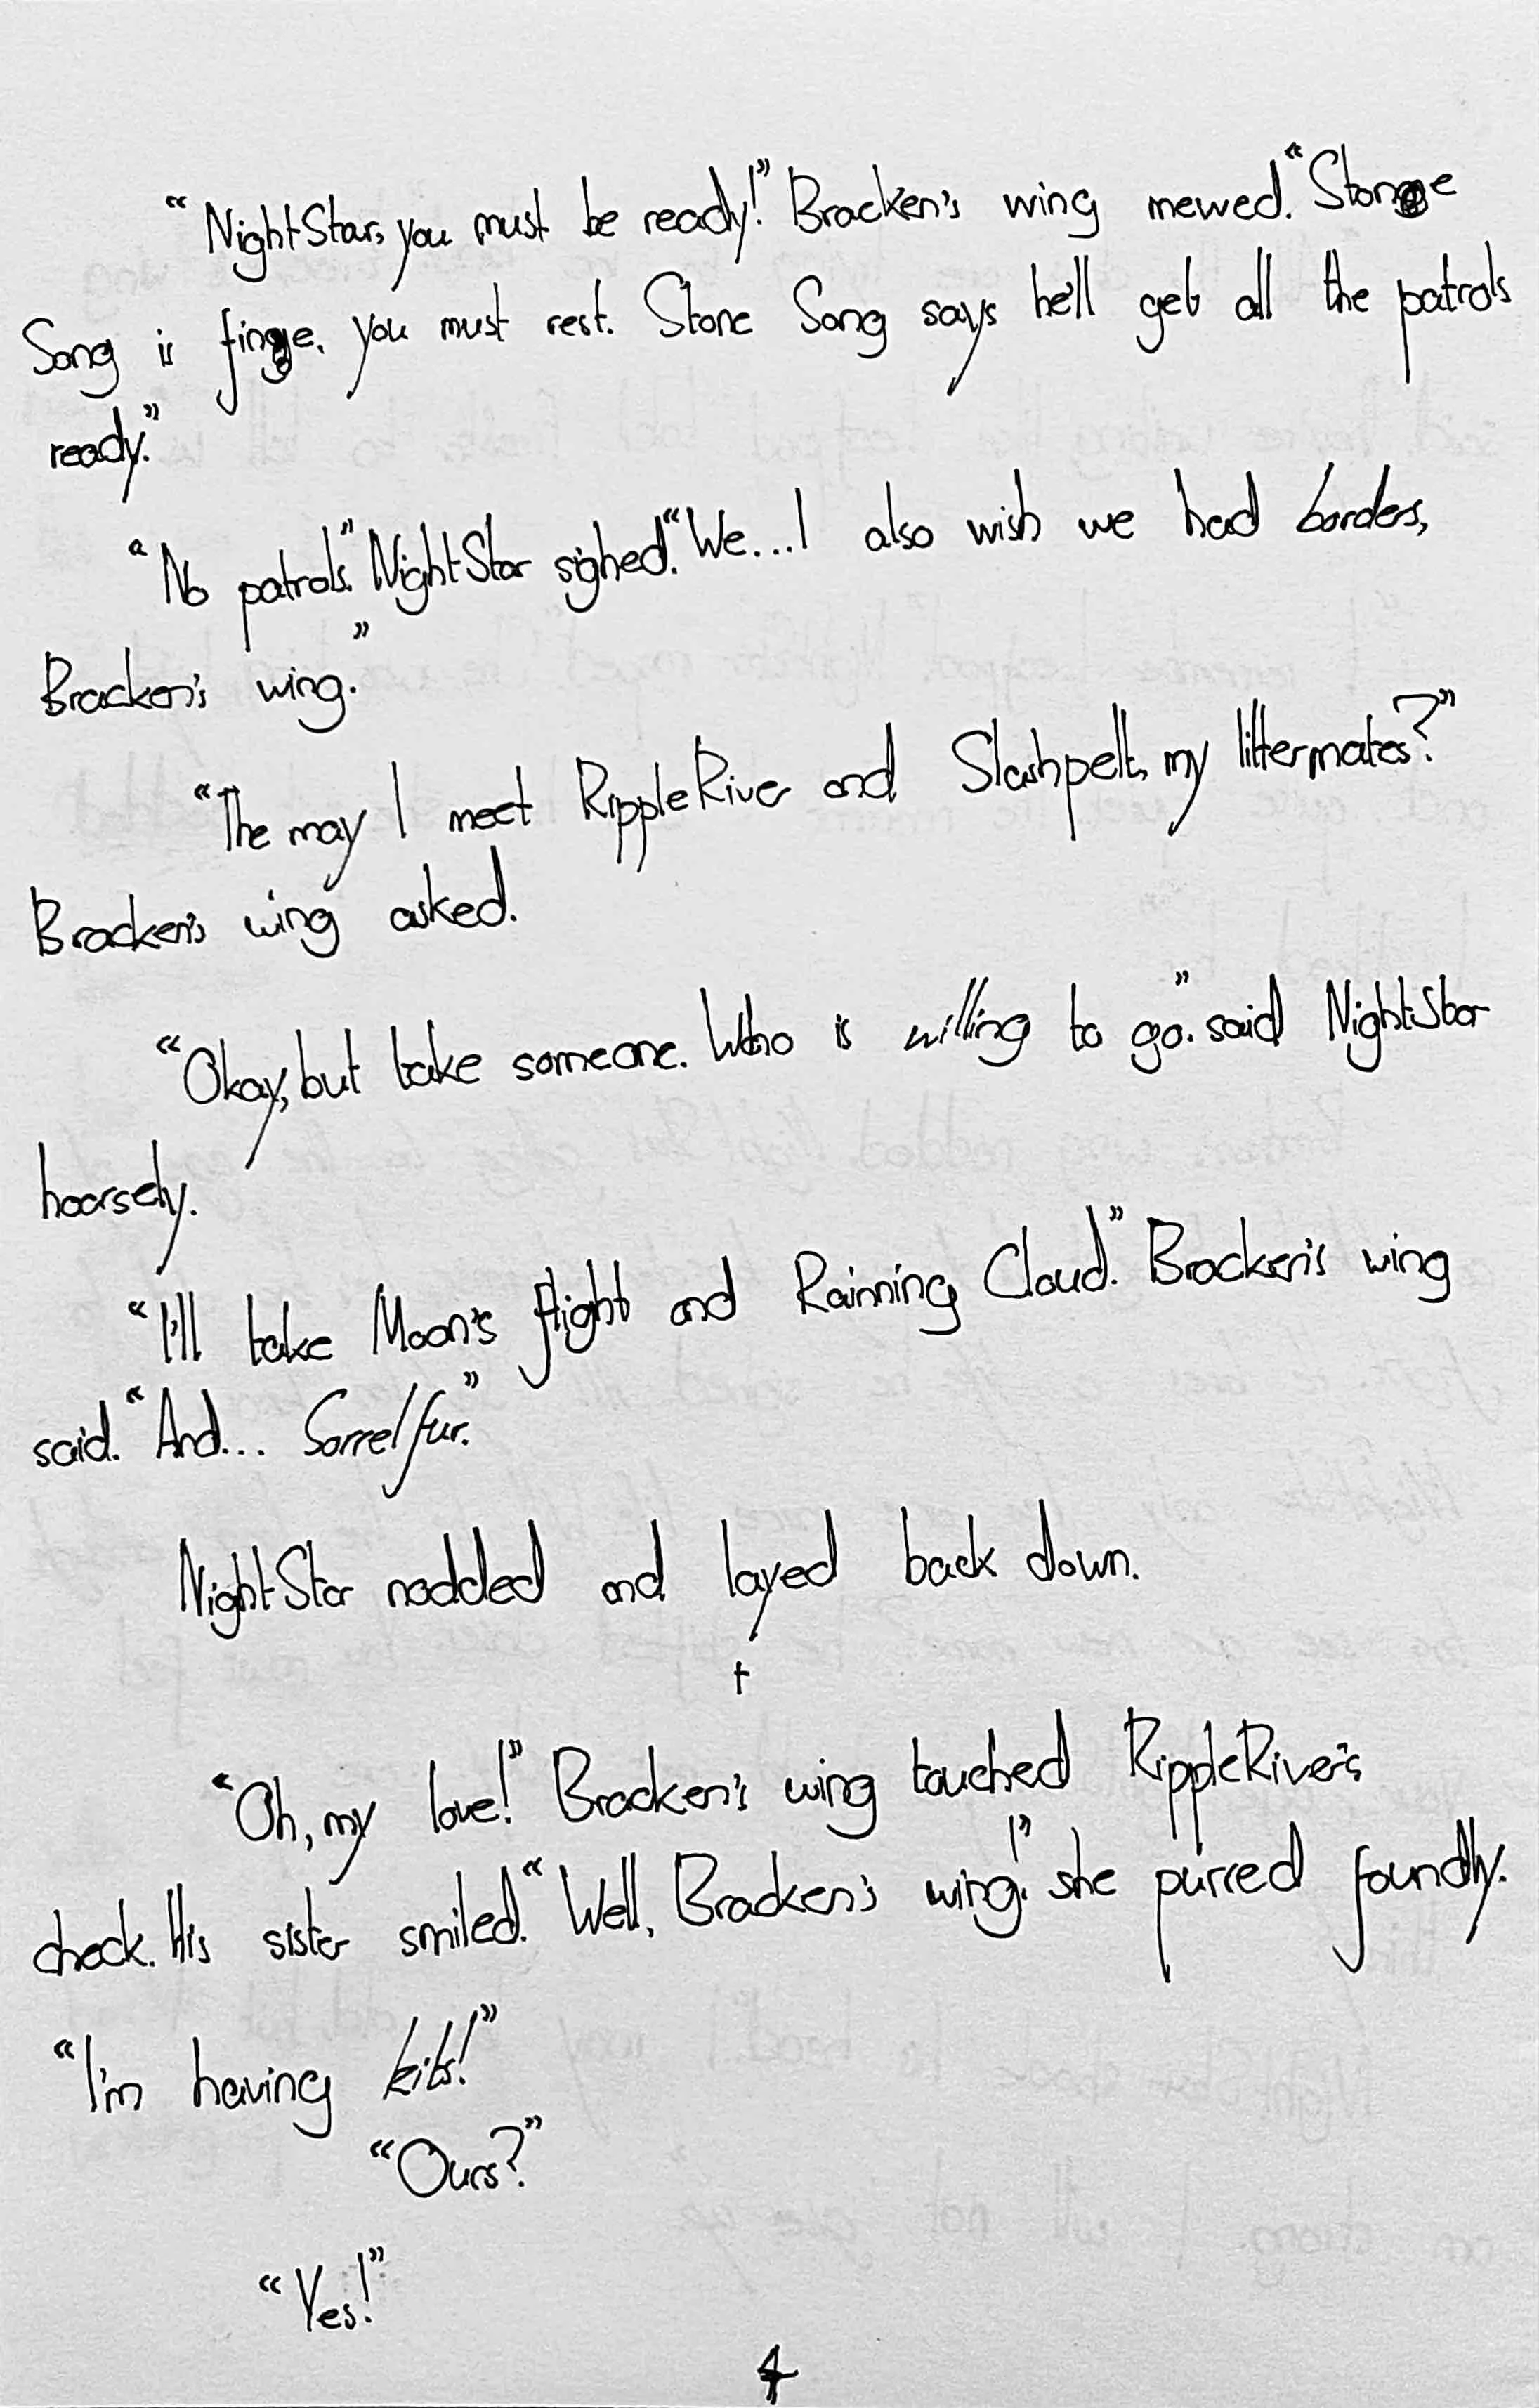 “NightStar, you must be ready!” Bracken's wing mewed. “Stone
Song is fine, you must rest. Stone Song says he'll get all the patrols
ready.”
“No patrols.” NightStar sighed. “We...I also wish we had borders,
Bracken's wing.”
“The may I meet RippleRiver and Slashpelt, my littermates?”
Bracken's wing asked.
“Okay, but take someone. Who is willing to go.” said NightStar
hoarsely.
“I'll take Moon's flight and Rainning Cloud.” Bracken's wing
said. “And... Sorrelfur.”
NightStar nodded and layed back down.
†
“Oh, my love!” Bracken's wing touched RippleRiver's
check. His sister smiled. “Well, Bracken's wing!” she purred foundly.
“I'm having kits!”
“Ours?”
“Yes!”
4